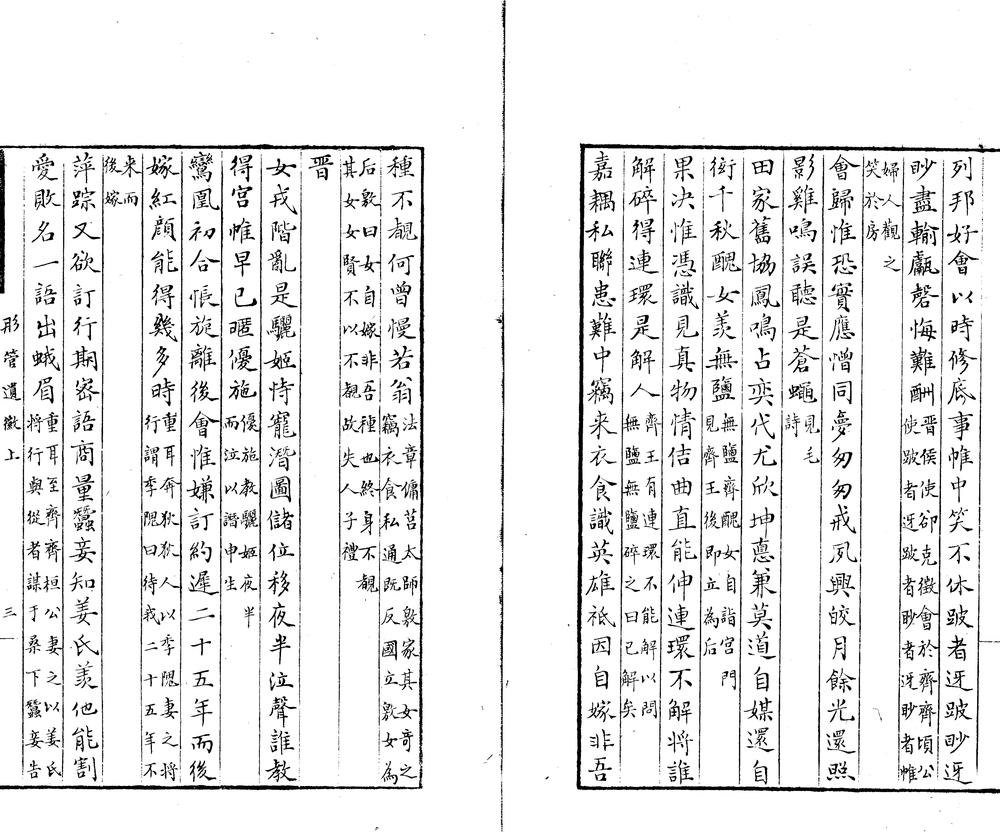 列邦好會以時修底事帷中笑不休跛者迓跛眇迓
眇盡輸觥罄悔難酬晋侯使卻克徵會於齊齊頃公
使跛者迓跛者眇者迓眇者帷
婦人觀之
笑於房
會歸惟恐實應憎同夢匆匆戒夙興皎月餘光還照
影雞鳴誤聽是蒼蠅見毛
詩
田家舊協鳳鳴占奕代尤欣坤悳兼莫道自媒還自
衒千秋醜女羡無鹽無鹽齊醜女自詣宮門
見齊王後即立為后
果决惟憑識見真物情佶曲直能伸連環不解將誰
解碎得連環是解人齊王有連環不能解以問
無鹽無鹽碎之曰已解矣
嘉耦私聯患難中竊来衣食識英雄祗因自嫁非吾
種不覩何曾慢若翁法章傭莒太師敫家其女奇之
竊衣食私通既反國立敫女為
后敫曰女自嫁非吾種也終身不覩
其女女賢不以不覩故失人子禮
晋
女戎階亂是驪姬恃寵潛圖儲位移夜半泣聲誰教
得宮帷早已暱優施優施教驪姬夜半
而泣以譖申生
鸞凰初合悵旋離後會惟嫌訂約遲二十五年而後
嫁紅顏能得幾多時重耳奔狄狄人以季隗妻之將
行謂季隗曰待我二十五年不
来而
後嫁
萍踪又欲訂行期密語商量蠶妾知姜氏羡他能割
愛敗名一語出蛾眉重耳至齊齊桓公妻之以姜氏
將行與從者謀于桑下蠶妾告
彤管遺徽上
三